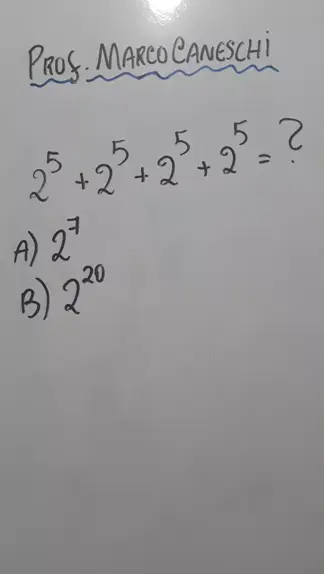 PROF. MARCO CANESCHI
2⁵ + 2⁵ + 2⁵ + 2⁵ = ?
A) 2⁷
B) 2²⁰